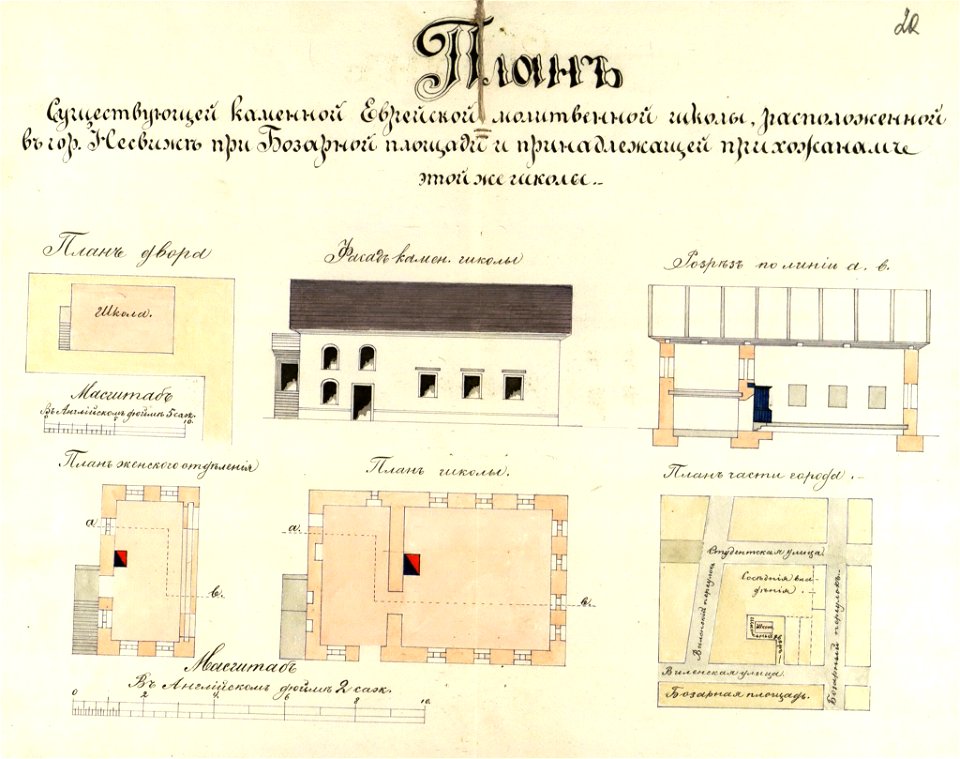 22
Планъ
Существующей каменной Еврейской молитвенной школы, расположенной
въ гор. Несвижѣ при Базарной площади и принадлежащей прихожанамъ
этой же школы.
Планъ двора
Фасадъ камен. школы
Розрѣзъ по линіи а. в.
Школа.
Масштабъ
Въ Англійскомъ дюймѣ 5 саж.
10.
Планъ женского отдѣленія
Планъ школы.
Планъ части города.
а.
в.
а.
в.
Студентская улица
Сосѣднія вла-
дѣнія.
Виленскій переулокъ
Базарный переулокъ.
Виленская улица.
Базарная площадь.
Масштабъ
Въ Англійскомъ дюймѣ 2 саж.
0 2 4 6 8 10.